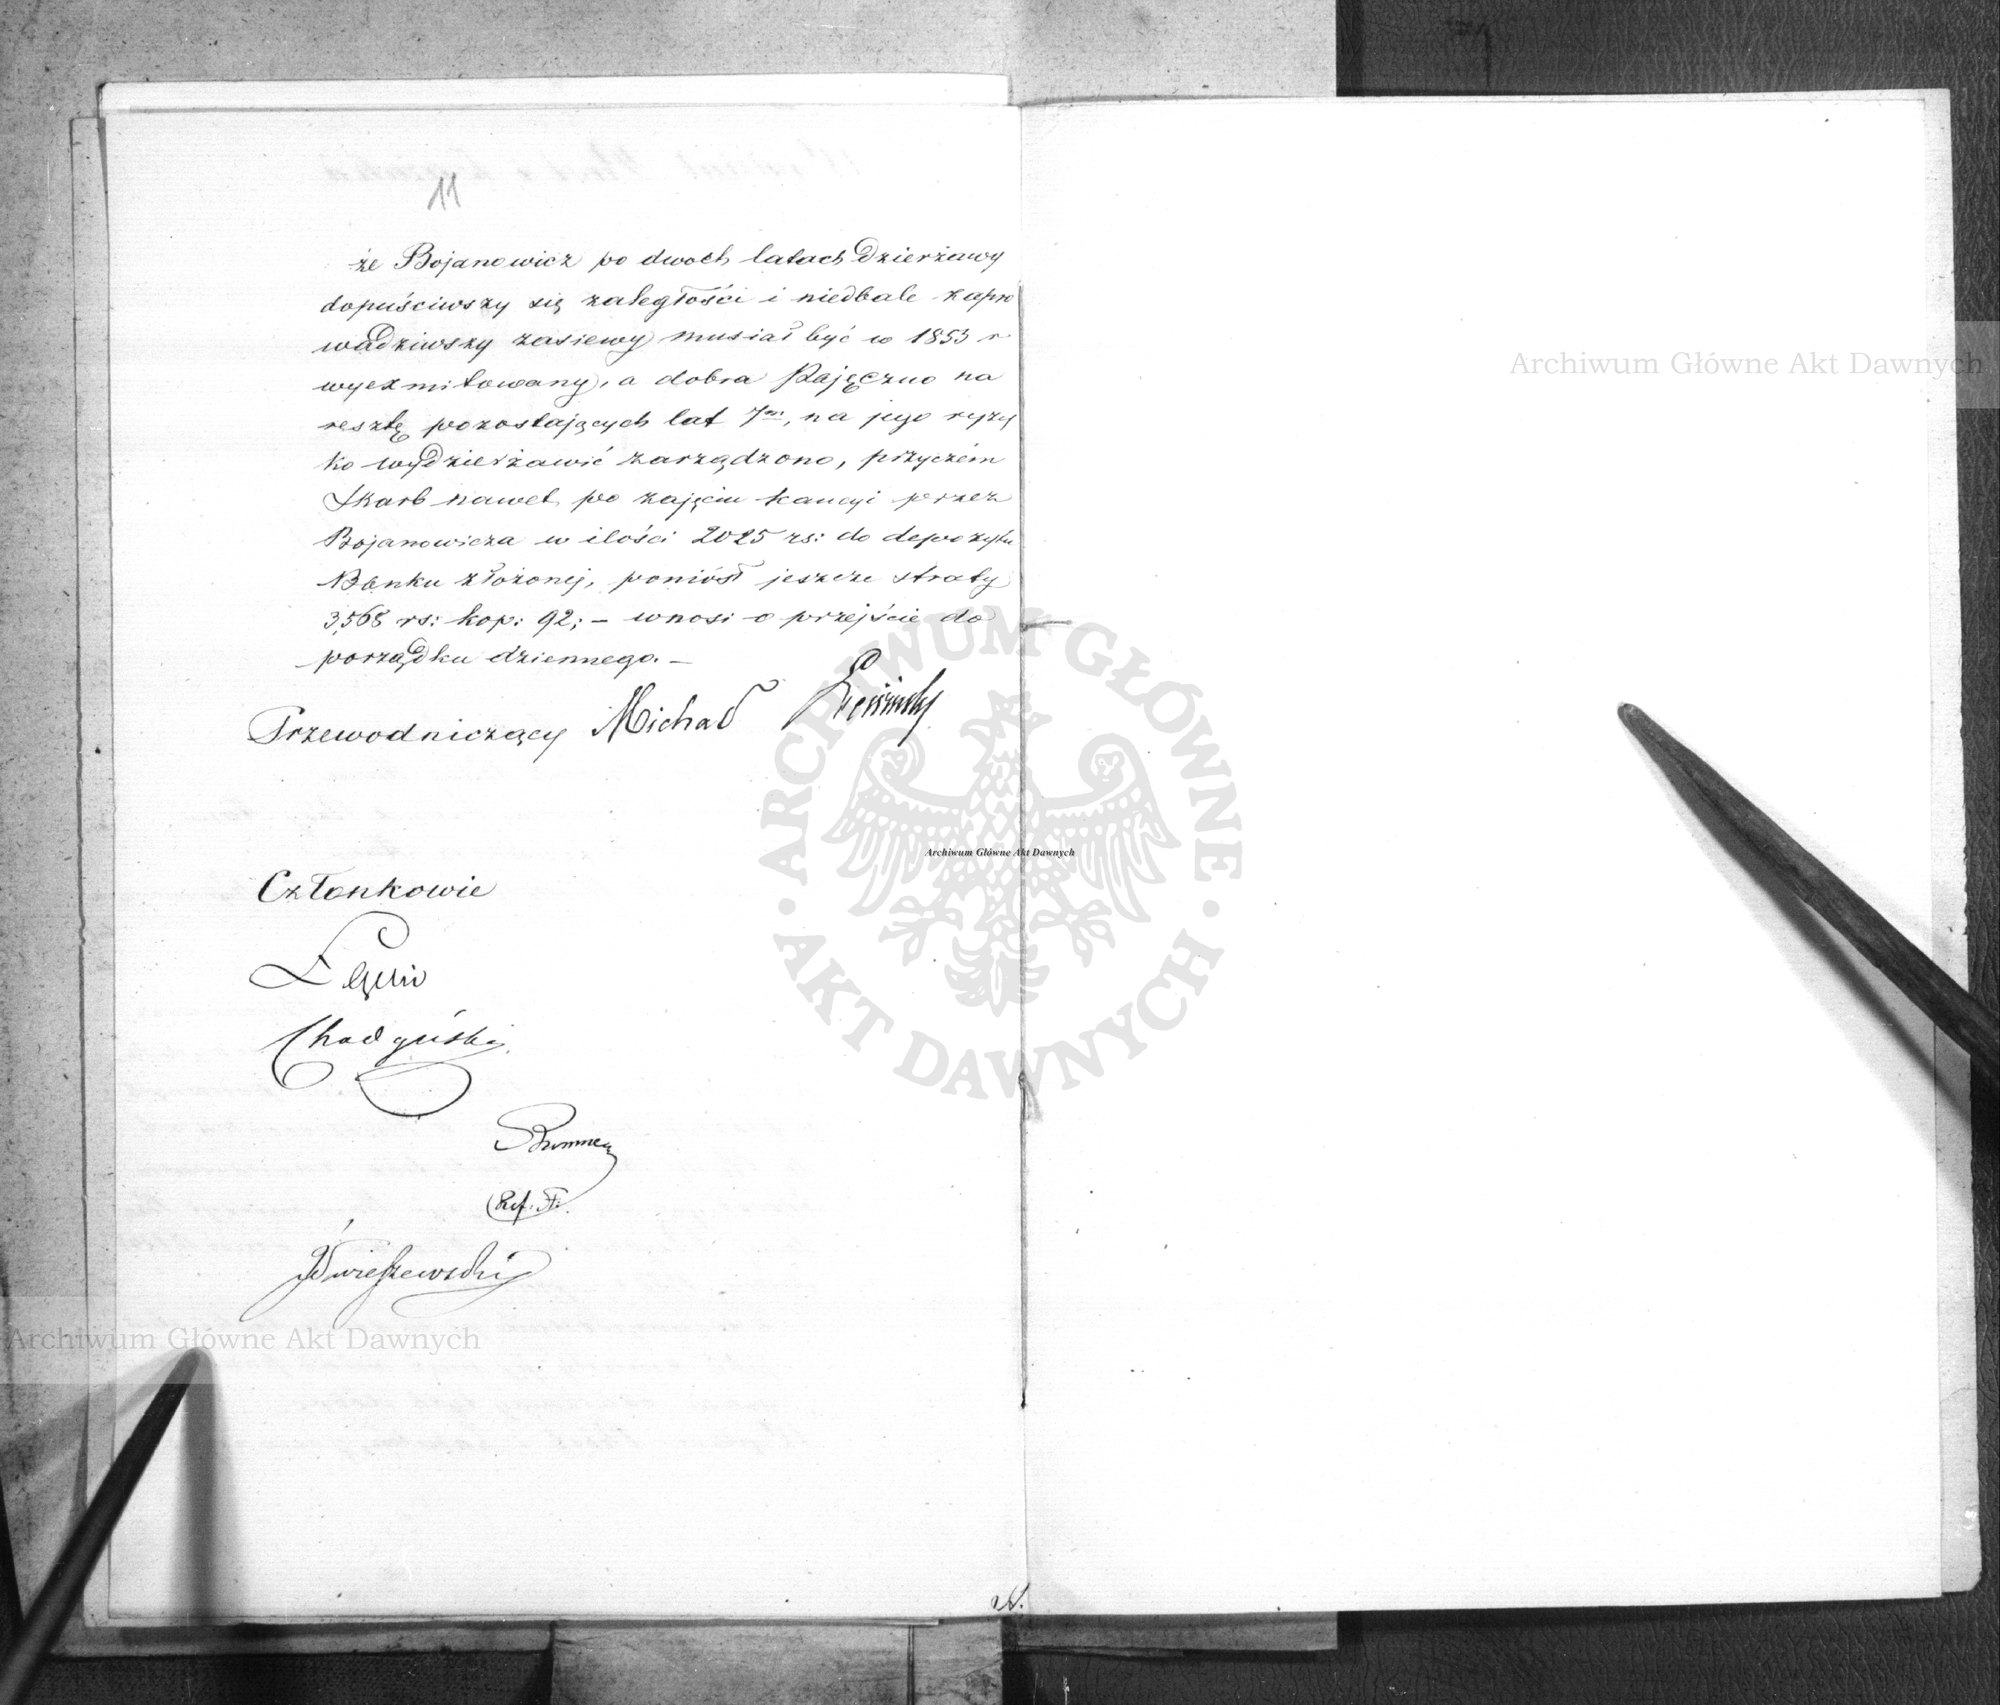 11
że Bojanowicz po dwóch latach Dzierżawy
dopuściwszy się zaległości i niedbale zapro
wadziwszy zasiewy musiał być w 1853 r
wyexmitowany, a dobra Pajęczno na
resztę pozostających lat 7m, na jego ryzy
ko wydzierżawić zarządzono, przyczém
Skarb nawet po zajęciu kaucyi przez
Bojanowicza w ilości 2025 rs: do depozytu
Banku złożonej, poniósł jeszcze straty
3,568 rs: kop: 92; – wnosi o przejście do
porządku dziennego. –
Przewodniczący Michał
Członkowie
Ref: St:
Archiwum Główne Akt Dawnych
ARCHIWUM GŁÓWNE
AKT DAWNYCH
Archiwum Główne Akt Dawnych
Archiwum Główne Akt Dawnych